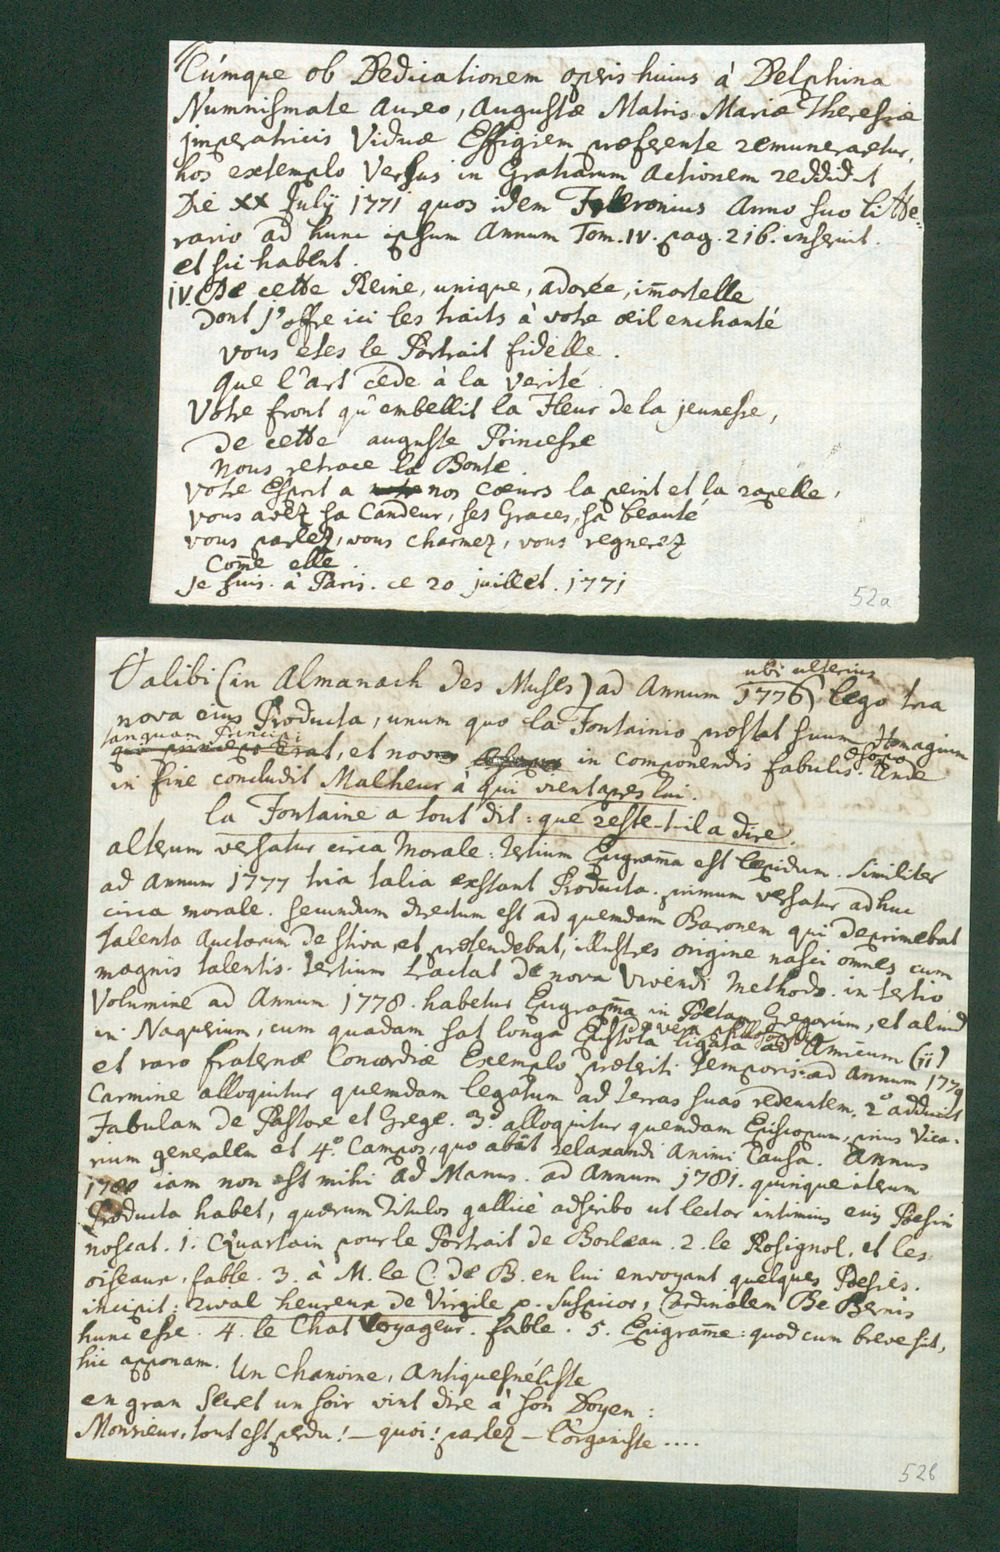 Cúmque ob Dedicationem operis huius à Delphina
Numnismate Aureo, Augustæ Matris Mariæ Theresiæ
jmperatricis Viduæ Effigiem præferente remuneraretur,
hos extemplo Versus in Gratiarum Actionem reddidit
Die XX July 1771 quos idem Freronius Anno suo Litte-
rario ad hunc ipsum Annum Tom. IV. pag. 216. inseruit.
et sic habent.
IV. De cette Reine, unique, adorée, im̄ortelle
Dont j'offre ici les traits à votre œil enchanté
vous etes le Portrait fidelle.
que l'art céde à la verité.
Votre front qu'embellit la Fleur de la jeunesse,
de cette auguste Princesse
nous retrace la Bonte.
votre Esprit a nos cœurs la peint et la rapelle,
vous avez sa Candeur, ses Graces, sa beauté
vous parlez, vous charmez, vous regnerez
Com̄e elle.
je suis. à Paris. ce 20 juillet. 1771
52a
&alibi (in Almanach des Muses) ad Annum 1776) ubi ulterius lego tria
nova eius Producta, unum quo la Fontainio præstat suum Homagium
tanquam Principi, et novo in componendis fabulis. Unde
in fine concludit Malheur à qui vient apres lui.
la Fontaine a tout dit: que reste-t-il a dire.
alterum versatur circa Morale: tertium Epigram̄a est lepidum. Similiter
ad Annum 1777 tria talia exstant Producta. primum versatur adhuc
circa morale. secundum directum est ad quemdam Baronem qui deprimebat
Talenta Auctorum de stiva, et prætendebat, illustres origine nasci omnes cum
magnis talentis. tertium tractat de nova Vivendi Methodo. in tertio
Volumine ad Annum 1778. habetur Epigram̄a in Poetam Gregorium, et aliud
in Naquerium, cum quadam sat longa Epistola ligata ad Amicum (ii)
et raro fraternæ Concordiæ Exemplo præteriti Temporis. ad Annum 1779
Carmine alloquitur quemdam legatum ad terras suas redeuntem. 2º adducit
Fabulam de Pastore et Grege. 3º alloquitur quemdam Episcopum, prius Vica-
rium generalem et 4º Campos, quo abiit relaxandi Animi Causa. Annus
1780 iam non est mihi ad Manus. ad Annum 1781. quinque iterum
Producta habet, quorum Titulos gallicè adscribo ut lector intimius eius Poesin
noscat. 1. Quartain pour le Portrait de Boileau. 2. le Rosignol, et les
oiseaux, fable. 3. à M. le C. de B. en lui envoyant quelques Poesies.
incipit: rival heureux de Virgile p. Suspicor, Cardinalem Be Bernis
hunc esse. 4. le Chat Voyageur. fable. 5. Epigram̄e: quod cum breve sit,
hic apponam. Un Chanoine, Antiquesnéliste
en gran Secret un soir vint dire à son Doyen:
Monsieur, tout est perdu! — quoi! parlez — l'organiste ....
52b